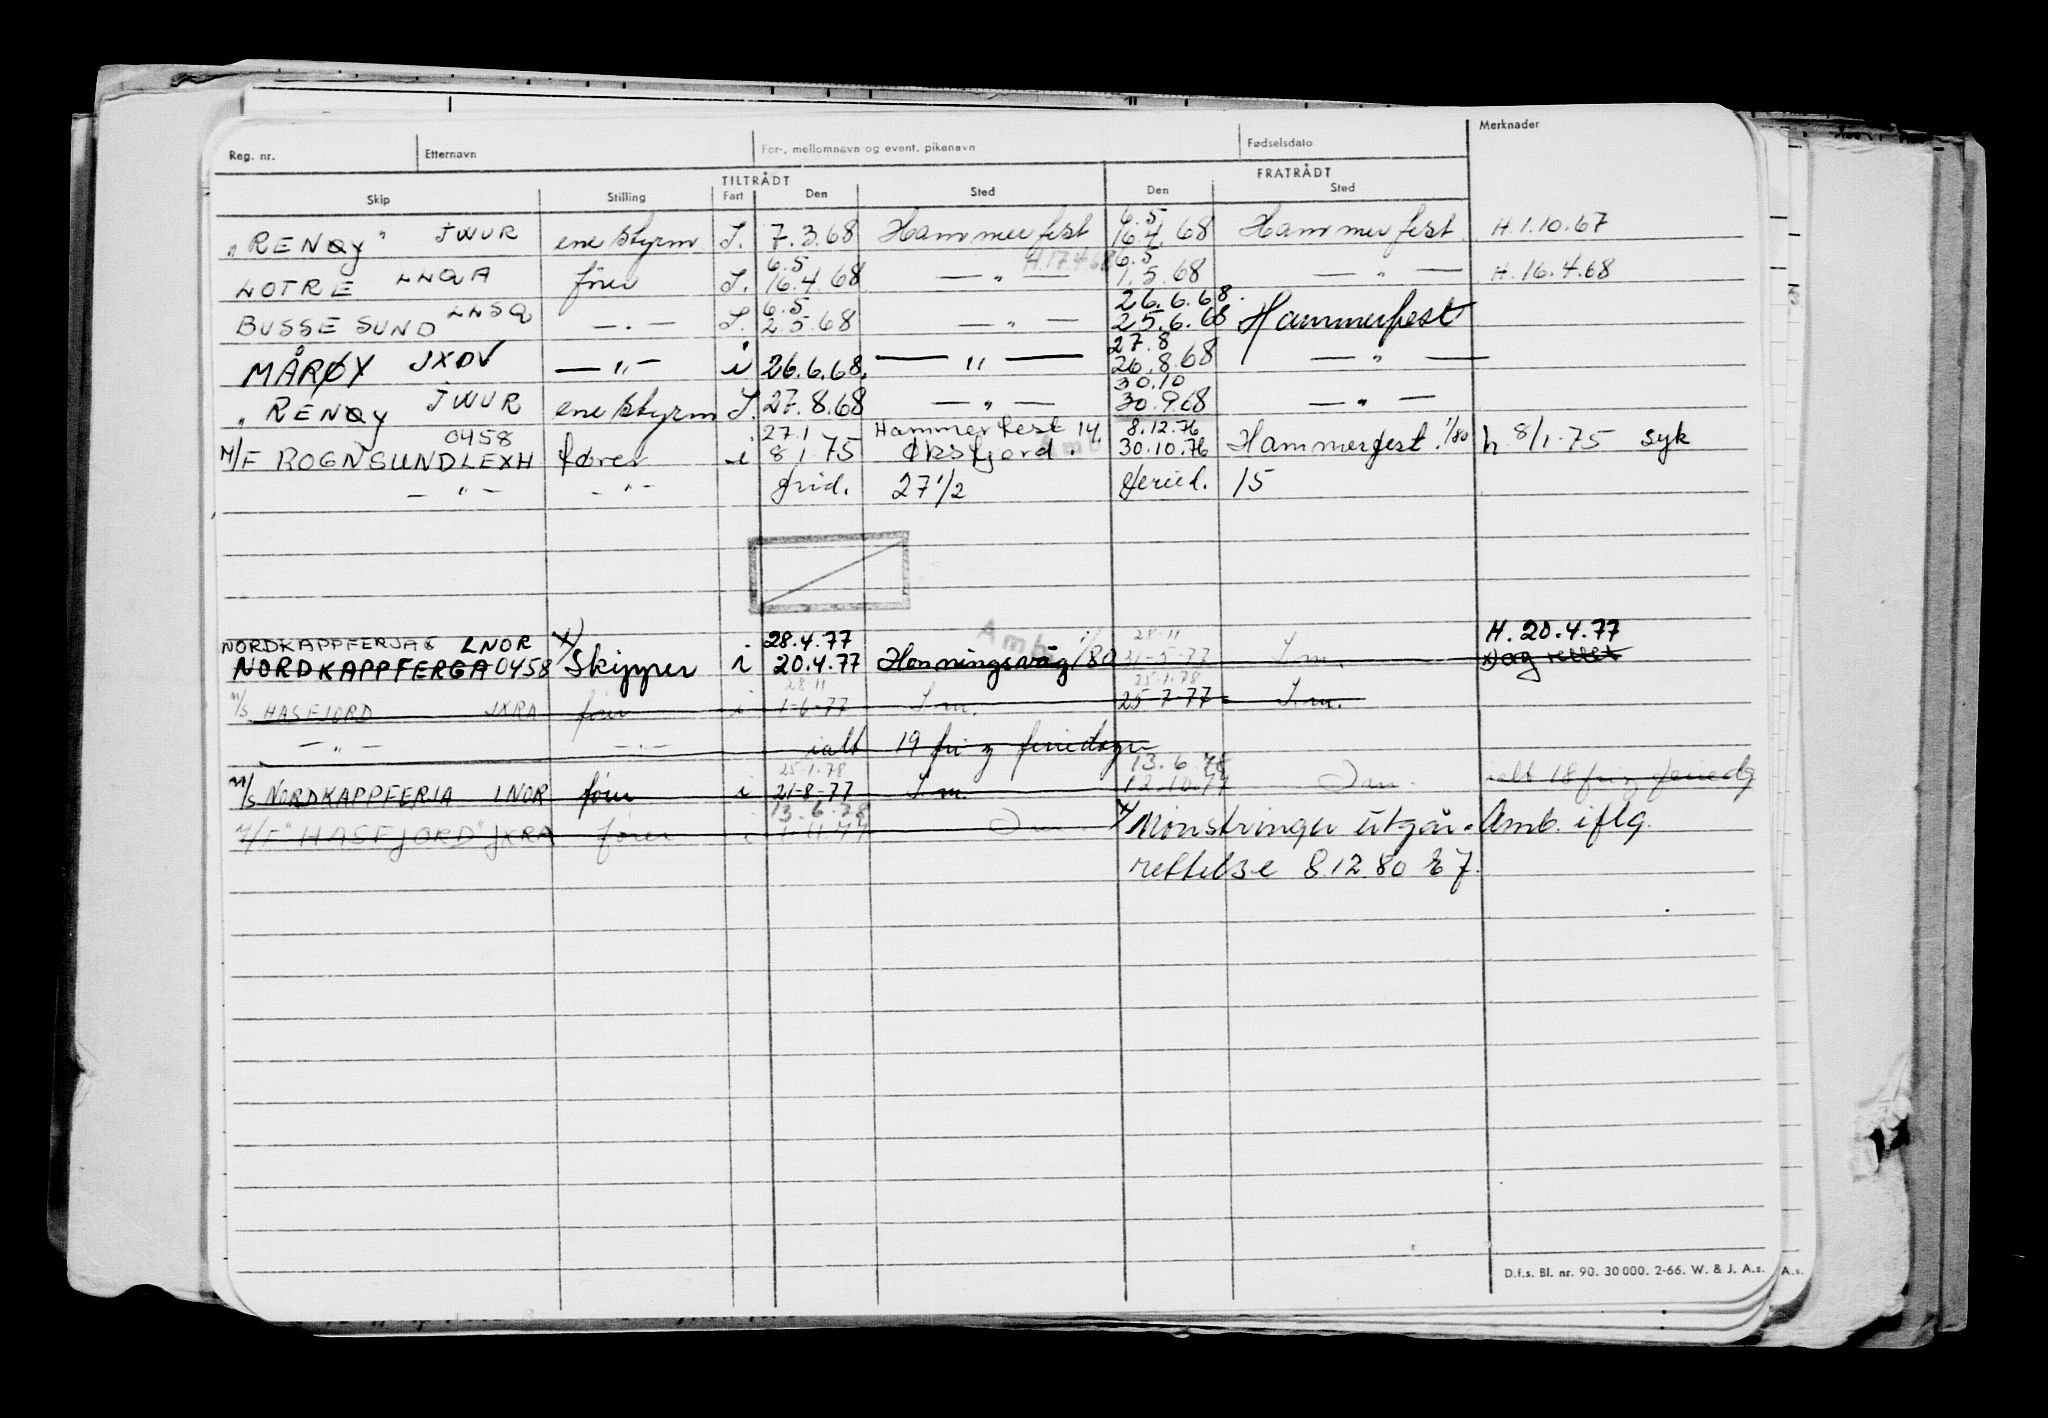 Reg. nr. Etternavn For-, mellomnavn og event. pikenavn Fødselsdato Merknader
TILTRÅDT FRATRÅDT
Skip Stilling Fart Den Sted Den Sted
6.5
"RENØY" JWUR ene styrm I. 7.3.68 Hammerfest 16.4.68 Hammerfest H.1.10.67
6.5 H.17.4.68 6.5
LOTRE LNQA fører I. 16.4.68 — " — 1.5.68 — " — H.16.4.68
6.5 26.6.68.
BUSSESUND LNSQ — " — I. 2.5.68 — " — 25.6.68 Hammerfest
27.8
MÅRØY JXDV — " — i 26.6.68. — " — 26.8.68 — " —
30.10
"RENØY JWUR ene styrm I. 27.8.68 — " — 30.9.68 — " —
0458 27.1 Hammerfest 14. 8.12.76
M/F ROGNSUND LEXH fører i 8.1.75 Øksfjord. 30.10.76 Hammerfest. 1/80 h 8/1-75 syk
— " — — " — frid. 27 1/2 feried. 15
NORDKAPPFERJA LNOR x) 28.4.77 Amb 1/ 28-11 H. 20.4.77
NORDKAPPFERGA 0458 Skipper i 20.4.77 Honningsvåg 80 31-5-77 I.m. x) og rettet
28-11 25-1-78
M/S HASFJORD JXRA fører i 1-6-77 I.m. 25-7-77 I.m.
— " — — " — ialt 19 fri og feriedager
25-1-78 13.6.78
M/S NORDKAPPFERJA LNOR fører i 21-8-77 I.m. 12.10.77 I.m. ialt 18 fri og feriedg
13.6.78
M/F "HASFJORD" JXRA fører i 1.11.77 I.m. x) Mønstringer utgår. Amb. iflg.
rettelse 8.12.80
D.f.s. Bl. nr. 90. 30 000. 2-66. W. & J. A.s. A.s.